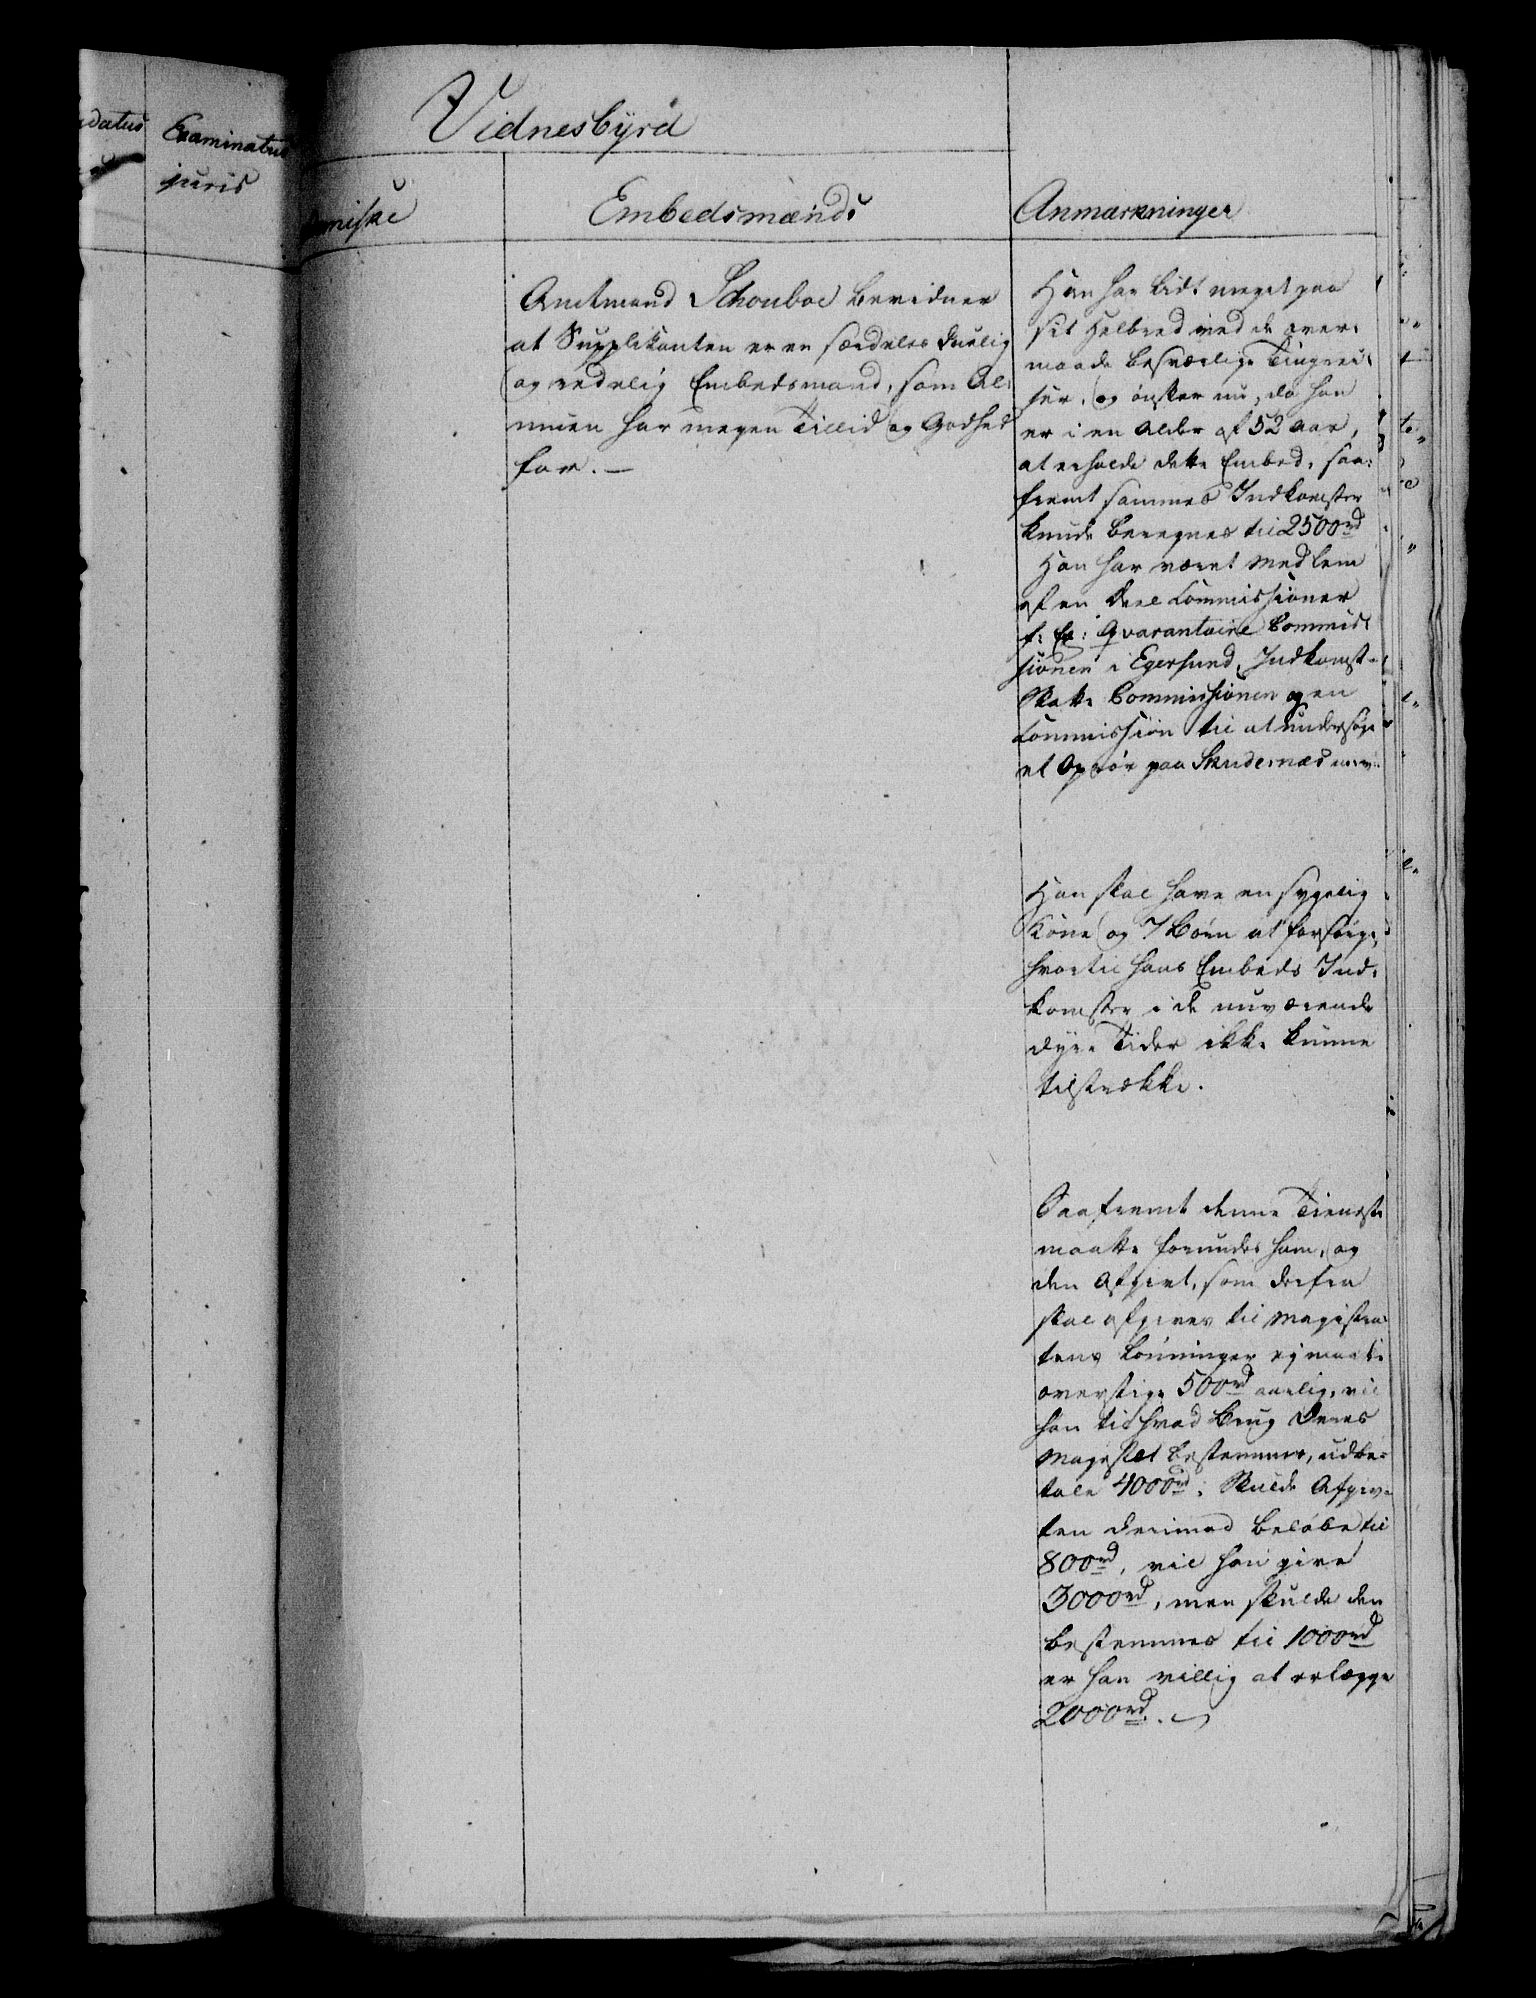 Vidnesbyrd
Examinatus
juris
Embedsmænds
Anmærkninger
Amtmand Schouboe bevidner
at Supplikanten er en særdeles duelig
og redelig Embedsmand, som Al-
muen har megen Tillid og Godhed
for. —
Han har lidt meget paa
sit Helbred ved de over-
maade besværlige Tingrei-
ser, og ønsker nu, da han
er i en Alder af 52 Aar,
at erholde dette Embed, saa-
fremt sammes Indkomster
kunde beregnes til 2500rd
Han har været Medlem
af en Deel Commissioner
f: Ex: Qvarantaine Commis-
sionen i Egersund, Indkomst-
Skatte Commissionen og en
Commission til at undersøge
et Oprør paa Skudenæs
Han skal have en sygelig
Kone og 7 Børn at forsørge,
hvortil hans Embeds Ind-
komster i de nuværende
dyre Tider ikke kunne
tilstrække.
Saafremt denne Tieneste
maatte forundes ham, og
den Afgivt, som derfra
skal afgives til Magistra-
tens Lønninger ej maatte
overstige 500rd aarlig, vil
han til hvad Brug Deres
Majestæt bestemmer, udbe-
tale 4000rd: Skulde Afgiv-
ten derimod beløbe til
800rd, vil han give
3000rd, men skulde den
bestemmes til 1000rd
er han villig at erlægge
2000rd.